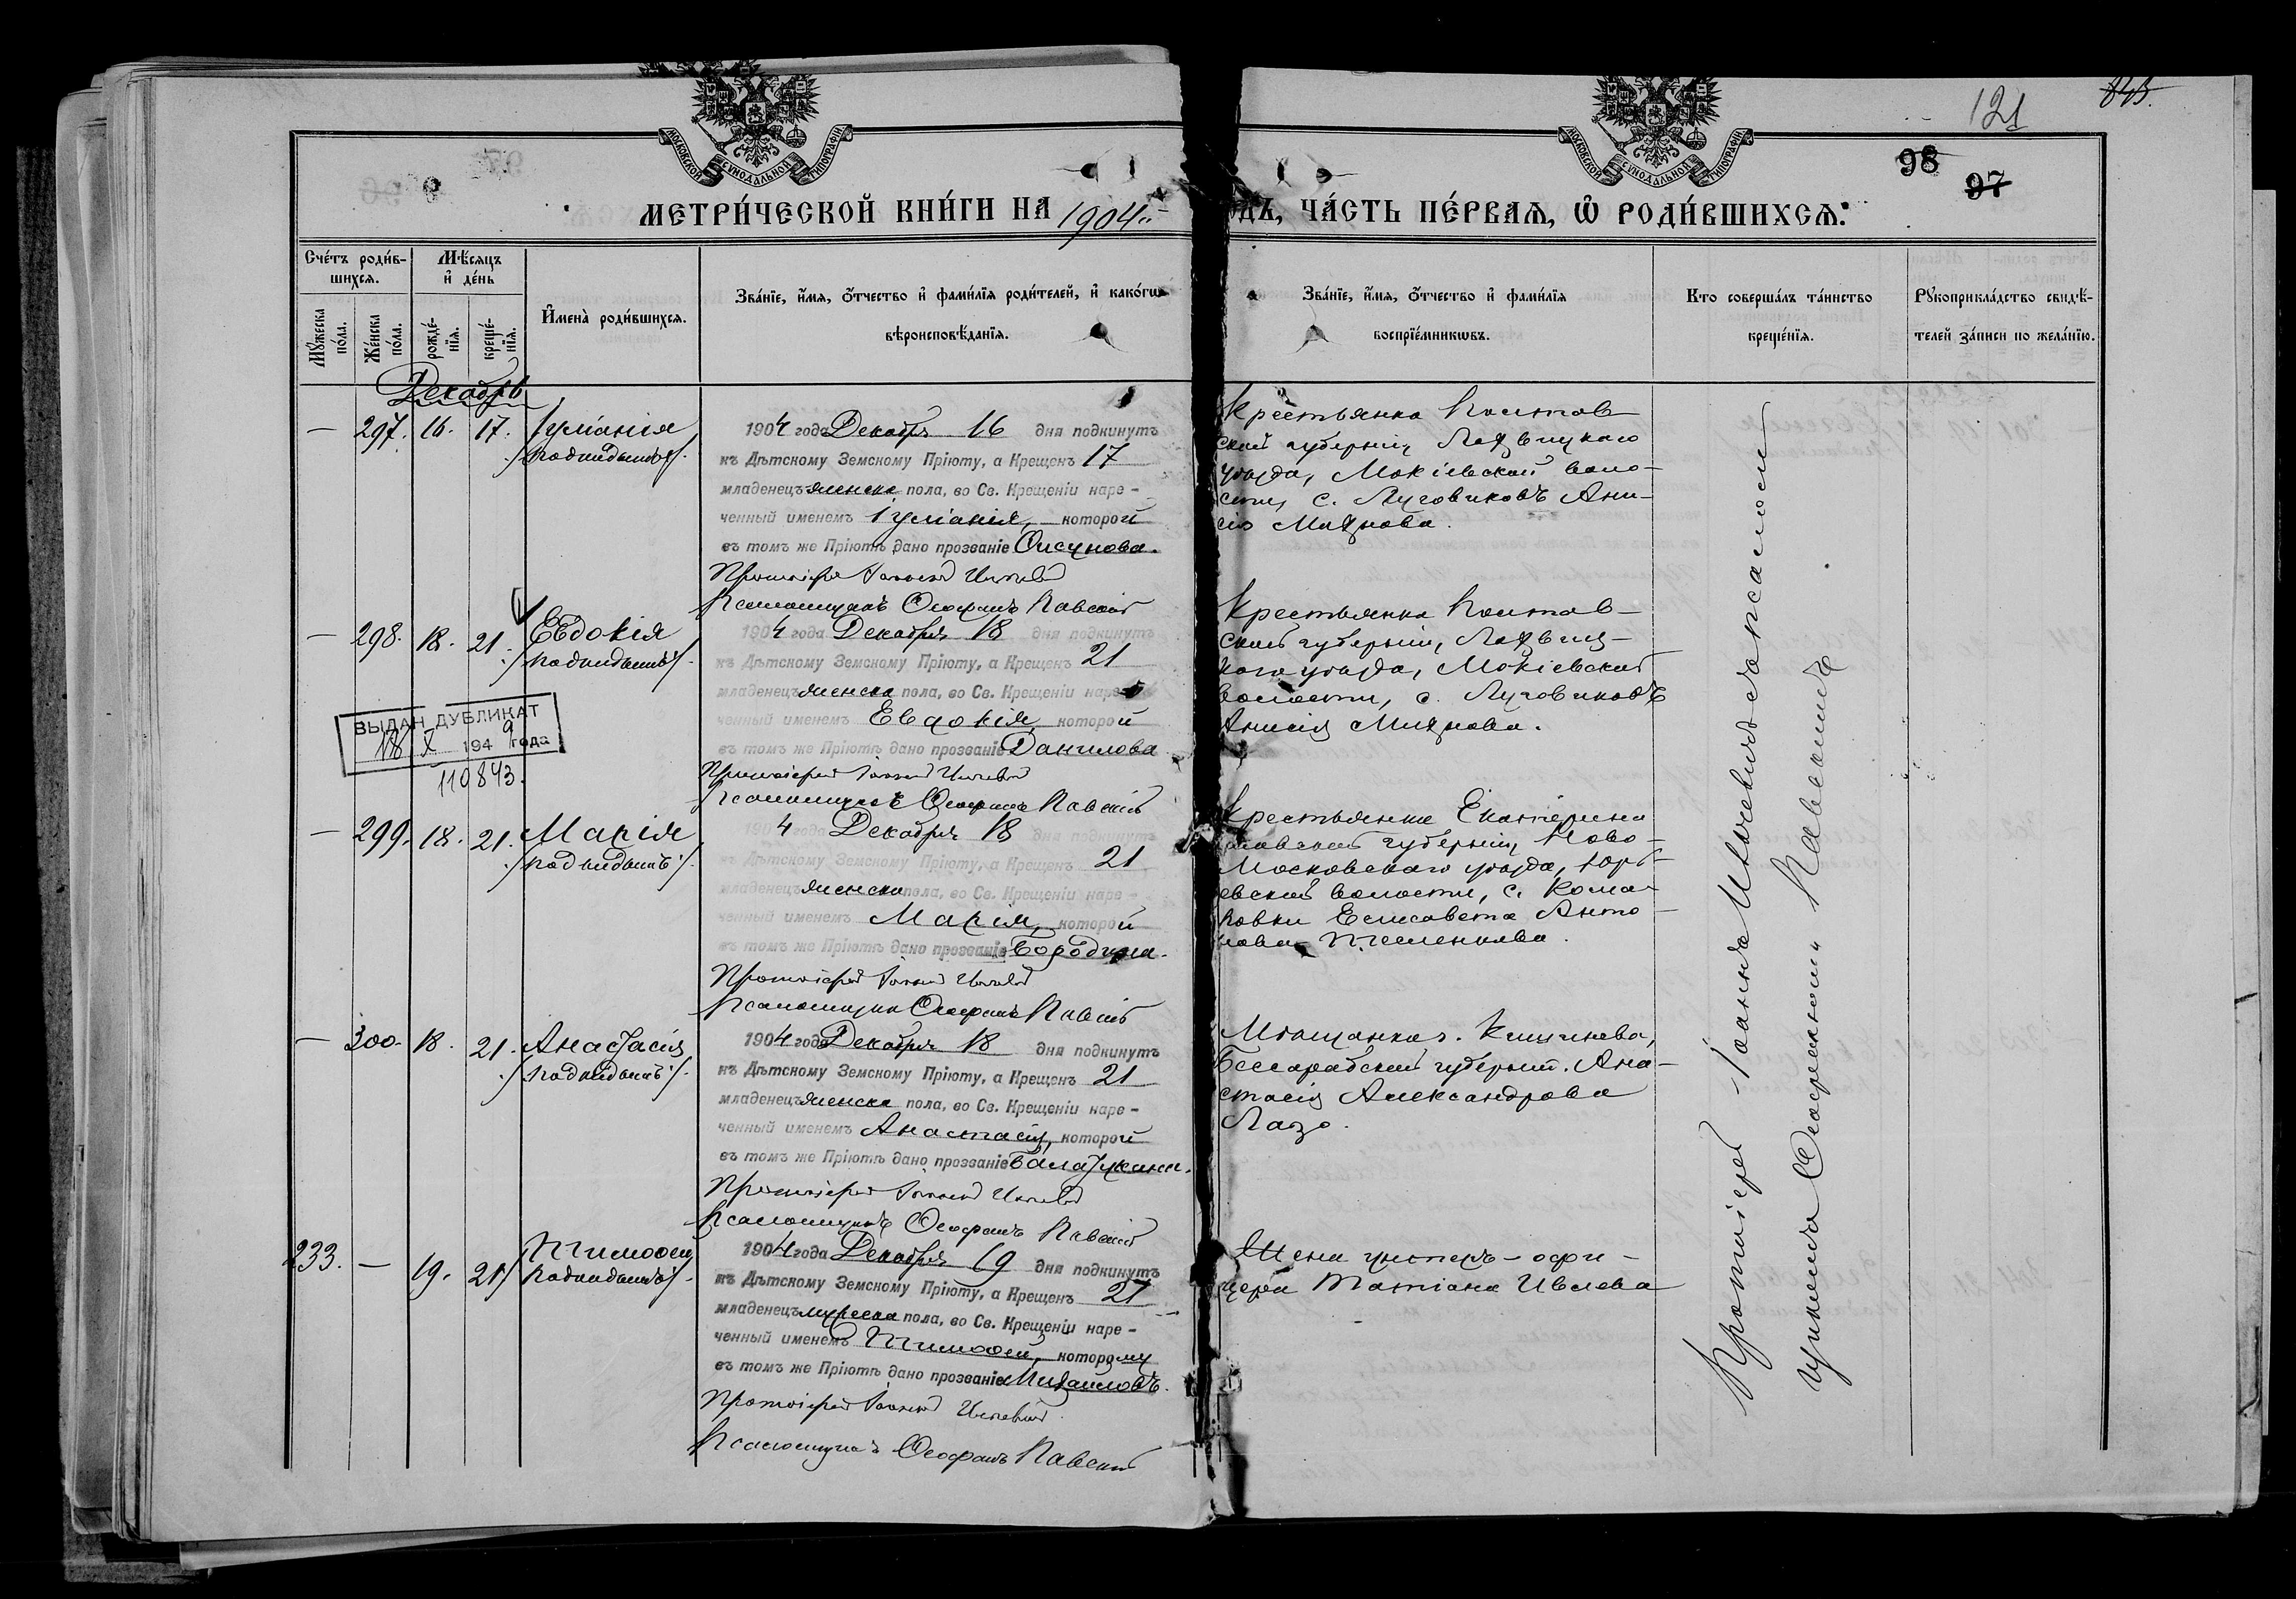 121
845.
98
97
МОСКОВСКОЙ СѴНОДАЛЬНОЙ ТИПОГРАФІИ
МОСКОВСКОЙ СѴНОДАЛЬНОЙ ТИПОГРАФІИ
МЕТРИ́ЧЕСКОЙ КНИ́ГИ НА 1904 ОДЪ, ЧА́СТЬ ПЕ́РВАЯ, Ѿ РОДИ́ВШИХСЯ:
Сче́тъ роди́в-
шихся.
Мѣ́сяцъ
и҆ де́нь
Мꙋ́жеска по́ла.
Же́нска по́ла.
рожде́-
нїя.
креще́-
нїя.
И҆мена̀ роди́вшихся.
Зва́нїе, и҆́мя, ѻ҆́тчество и҆ фами́лїя роди́телей, и҆ како́гѡ
вѣроисповѣ́данїя.
Зва́нїе, и҆́мя, ѻ҆́тчество и҆ фами́лїя
воспрїе́мникѡвъ.
Кто соверша́лъ та́инство
креще́нїя.
Рꙋкоприкла́дство свидѣ́-
телей за́писи по жела́нїю.
Декабрь
— 297. 16. 17. Іуліанія
/подкидышъ/.
1904 года Декабря 16 дня подкинутъ
къ Дѣтскому Земскому Пріюту, а Крещенъ 17
младенецъ женска пола, во Св. Крещеніи наре-
ченный именемъ Іуліанія, которой
въ томъ же Пріютѣ дано прозваніе
Протоіерей Іоаннъ
Псаломщикъ Ѳеофанъ Павскій
Крестьянка Полтав-
ской губерніи Лохвицкаго
уѣзда, Мокіевской воло-
сти, с. Луговиковъ Ани-
сія Михнова.
— 298. 18. 21. Евдокія
/подкидышъ/.
1904 года Декабря 18 дня подкинутъ
къ Дѣтскому Земскому Пріюту, а Крещенъ 21
младенецъ женска пола, во Св. Крещеніи наре-
ченный именемъ Евдокія, которой
въ томъ же Пріютѣ дано прозваніе Данилова
Протоіерей Іоаннъ
Псаломщикъ Ѳеофанъ Павскій
Крестьянка Полтав-
ской губерніи, Лохвиц-
каго уѣзда, Мокіевской
волости, с. Луговиковъ
Анисія Михнова.
ВЫДАН ДУБЛИКАТ
18 X 1949 года
110843.
— 299. 18. 21. Марія
/подкидышъ/.
1904 года Декабря 18 дня подкинутъ
къ Дѣтскому Земскому Пріюту, а Крещенъ 21
младенецъ женска пола, во Св. Крещеніи наре-
ченный именемъ Марія, которой
въ томъ же Пріютѣ дано прозваніе Бородина.
Протоіерей Іоаннъ
Псаломщикъ Ѳеофанъ Павскій
Крестьянка Екатерино
славской губерніи, Ново-
Московскаго уѣзда, Юрь-
евской волости, с. Кома-
ровки Елисавета Анто-
нова
— 300. 18. 21. Анастасія
/подкидышъ/.
1904 года Декабря 18 дня подкинутъ
къ Дѣтскому Земскому Пріюту, а Крещенъ 21
младенецъ женска пола, во Св. Крещеніи наре-
ченный именемъ Анастасія, которой
въ томъ же Пріютѣ дано прозваніе
Протоіерей Іоаннъ
Псаломщикъ Ѳеофанъ Павскій
Мѣщанка г. Кишинева,
Бессарабской губерніи. Ана-
стасія Александрова
Лазо.
233. — 19. 21. Тимоѳей
/подкидышъ/.
1904 года Декабря 19 дня подкинутъ
къ Дѣтскому Земскому Пріюту, а Крещенъ 21
младенецъ мужеска пола, во Св. Крещеніи наре-
ченный именемъ Тимоѳей, которому
въ томъ же Пріютѣ дано прозваніе Михайловъ.
Протоіерей Іоаннъ
Псаломщикъ Ѳеофанъ Павскій
Жена унтеръ-офи-
цера Татіана Ивлева
Протоіерей Іоаннъ съ псалом
щикомъ Ѳеофаномъ Павскимъ